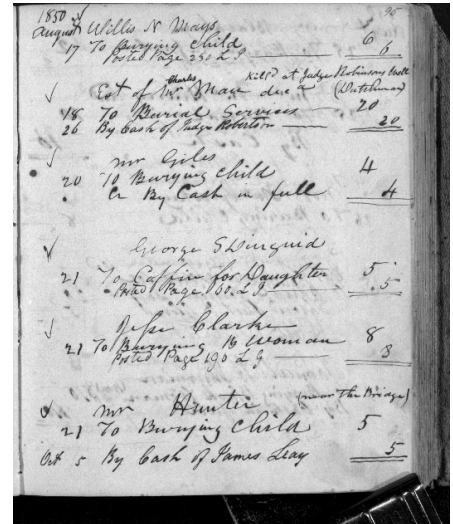 1850 95
August Willis N Mays
17 To Burying Child 6
Posted Page 230 L G 6
Est of Mr Charles Man dec'd Kill'd at Judge Robinsons
(Dutchman)
18 To Burial Services 20
26 By Cash of Judge Robertson 20
Mr Giles
20 To Burying Child 4
Cr By Cash in full 4
George S Duiguid
21 To Coffin for Daughter 5
Posted Page 60 L G 5
Jesse Clarke
21 To Burying woman 8
Posted Page 190 L G 8
Mr Hunter (near the Bridge)
21 To Burying Child 5
Oct 5 By Cash of James Leay 5